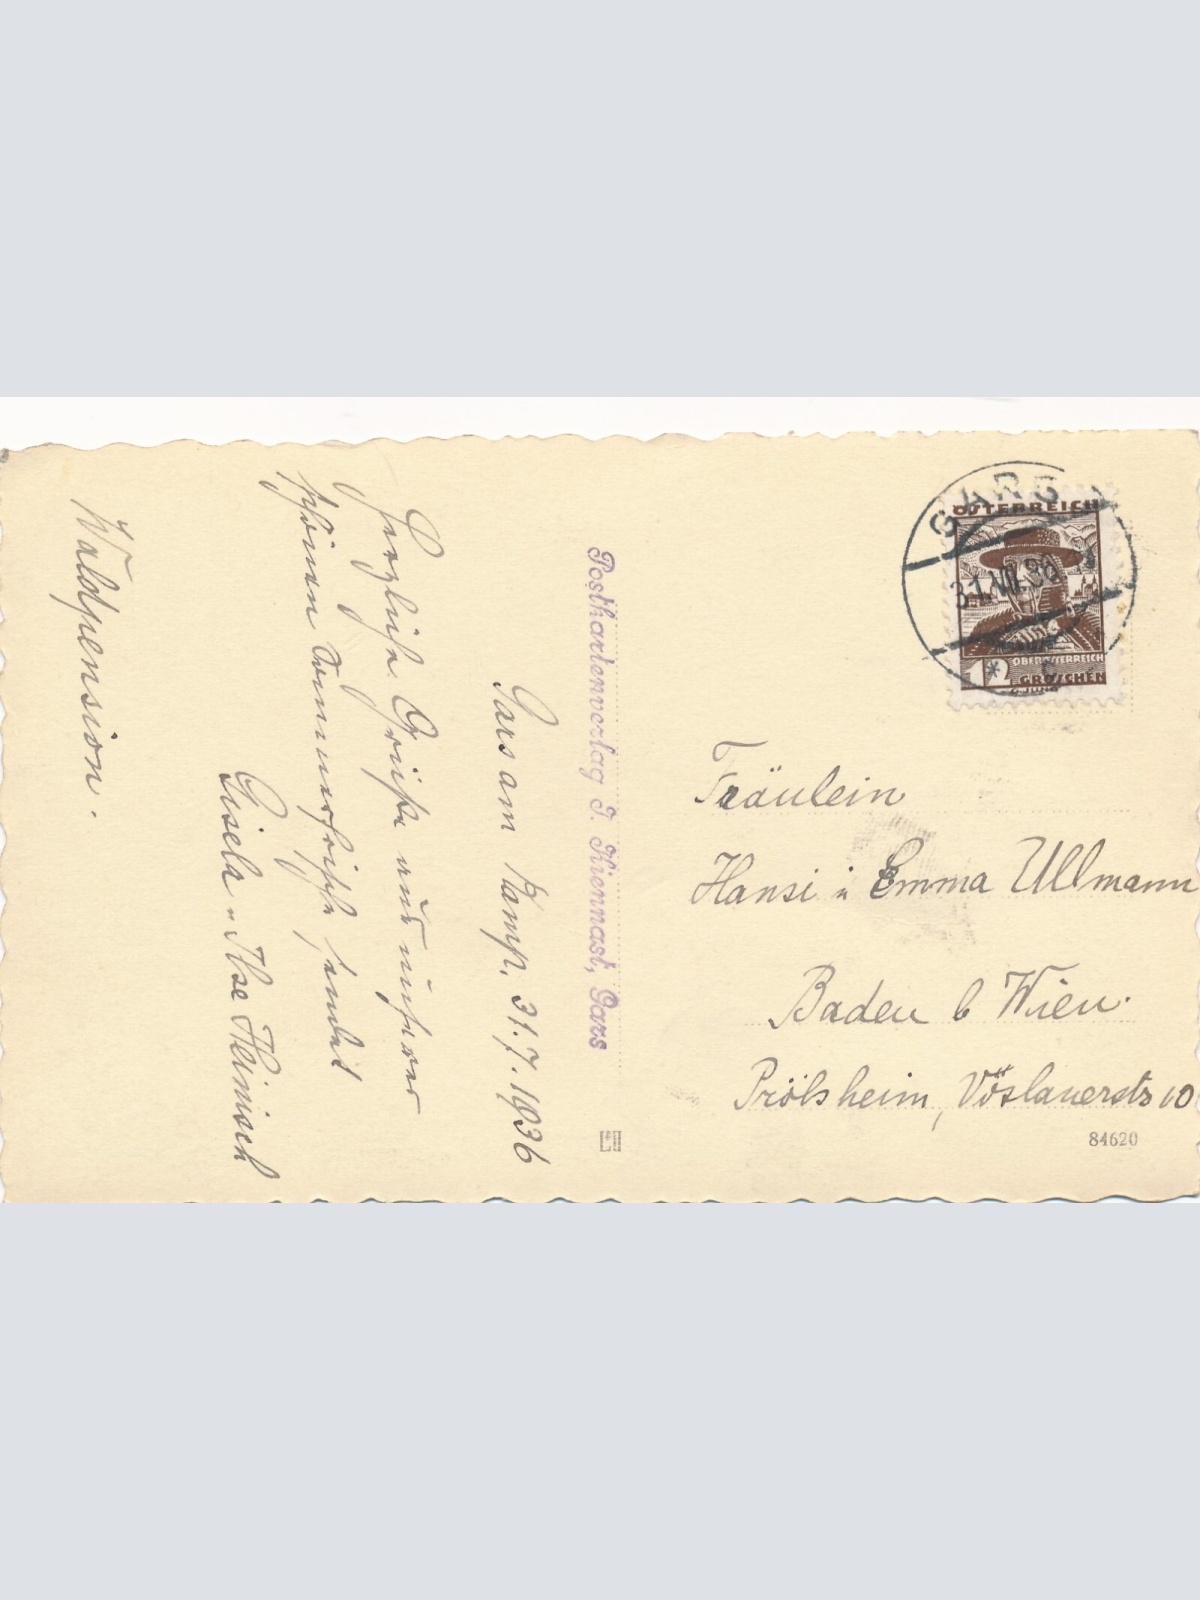 Gars am Kamp, 31.7.1936
Herzliche Grüße aus unserer
schönen Sommerfrische sendet
Gisela u. Ilse Heinisch
Waldpension.
Postkartenverlag J. Kiennast, Gars
GARS
31.VII.36
ÖSTERREICH
OBERÖSTERREICH
12 GROSCHEN
Fräulein
Hansi u Emma Ullmann
Baden b Wien.
Vöslauerstr 10
84620